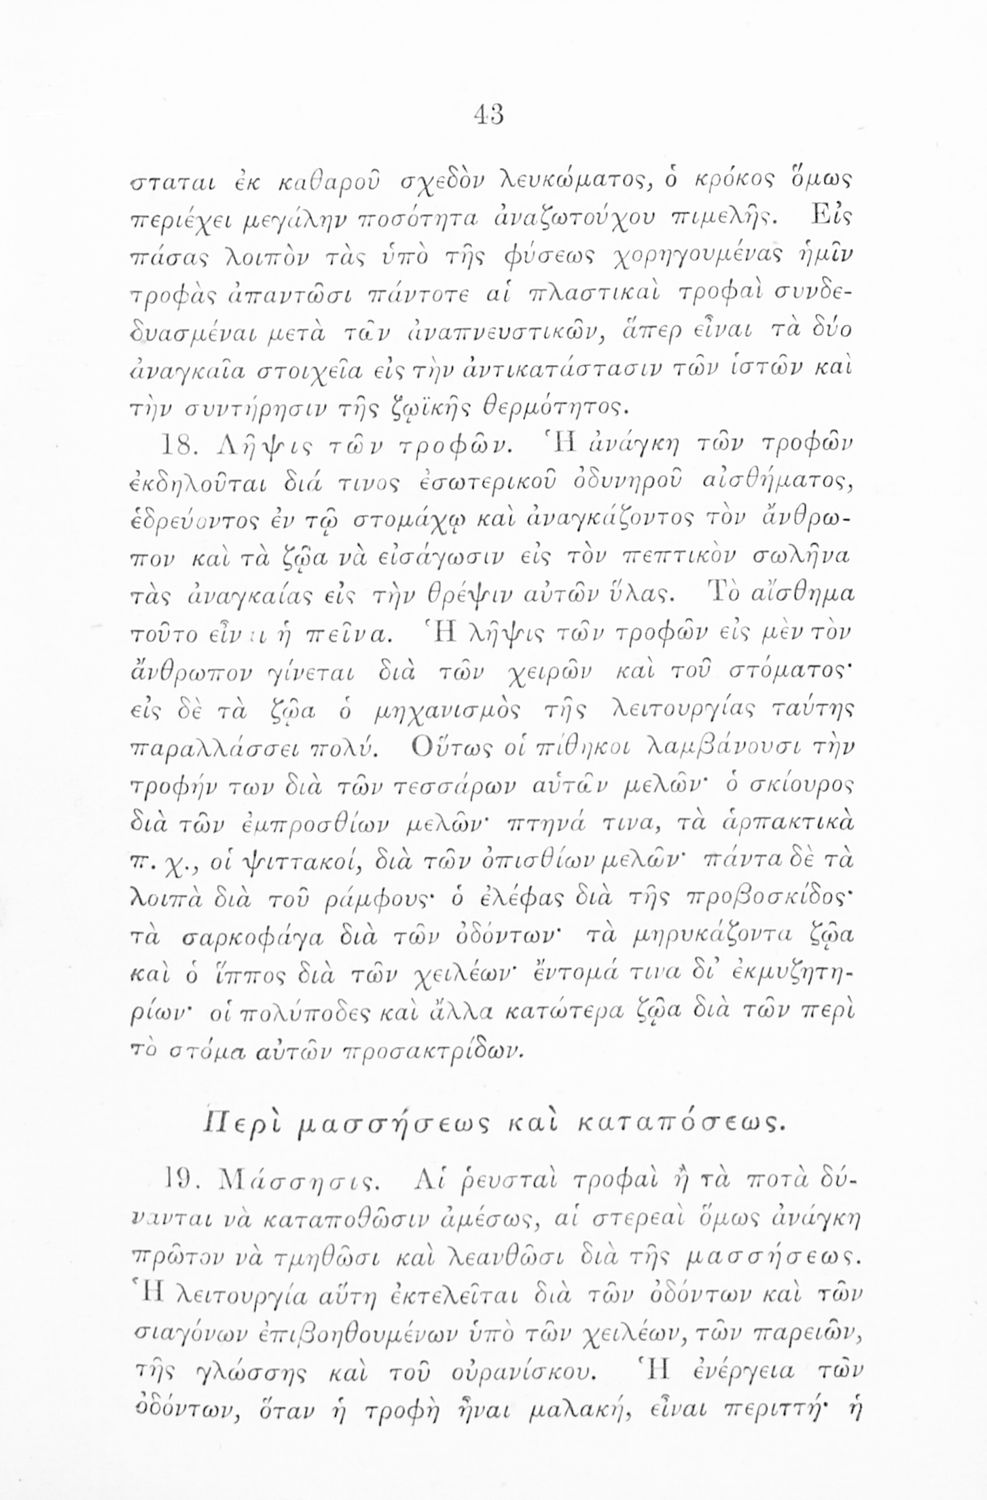 43
σταται ἐκ καθαροῦ σχεδὸν λευκώματος, ὁ κρόκος ὅμως
περιέχει μεγάλην ποσότητα ἀναζωτούχου πιμελῆς. Εἰς
πάσας λοιπὸν τὰς ὑπὸ τῆς φύσεως χορηγουμένας ἡμῖν
τροφὰς ἀπαντῶσι πάντοτε αἱ πλαστικαὶ τροφαὶ συνδε-
δυασμέναι μετὰ τῶν ἀναπνευστικῶν, ἅπερ εἶναι τὰ δύο
ἀναγκαῖα στοιχεῖα εἰς τὴν ἀντικατάστασιν τῶν ἱστῶν καὶ
τὴν συντήρησιν τῆς ζῳϊκῆς θερμότητος.
18. Λῆψις τῶν τροφῶν. Ἡ ἀνάγκη τῶν τροφῶν
ἐκδηλοῦται διά τινος ἐσωτερικοῦ ὀδυνηροῦ αἰσθήματος,
ἑδρεύοντος ἐν τῷ στομάχῳ καὶ ἀναγκάζοντος τὸν ἄνθρω-
πον καὶ τὰ ζῷα νὰ εἰσάγωσιν εἰς τὸν πεπτικὸν σωλῆνα
τὰς ἀναγκαίας εἰς τὴν θρέψιν αὐτῶν ὕλας. Τὸ αἴσθημα
τοῦτο εἶναι ἡ πεῖνα. Ἡ λῆψις τῶν τροφῶν εἰς μὲν τὸν
ἄνθρωπον γίνεται διὰ τῶν χειρῶν καὶ τοῦ στόματος·
εἰς δὲ τὰ ζῷα ὁ μηχανισμὸς τῆς λειτουργίας ταύτης
παραλλάσσει πολύ. Οὕτως οἱ πίθηκοι λαμβάνουσι τὴν
τροφήν των διὰ τῶν τεσσάρων αὑτῶν μελῶν· ὁ σκίουρος
διὰ τῶν ἐμπροσθίων μελῶν· πτηνά τινα, τὰ ἁρπακτικὰ
π. χ., οἱ ψιττακοί, διὰ τῶν ὀπισθίων μελῶν· πάντα δὲ τὰ
λοιπὰ διὰ τοῦ ράμφους· ὁ ἐλέφας διὰ τῆς προβοσκίδος·
τὰ σαρκοφάγα διὰ τῶν ὀδόντων· τὰ μηρυκάζοντα ζῷα
καὶ ὁ ἵππος διὰ τῶν χειλέων· ἔντομά τινα δι’ ἐκμυζητη-
ρίων· οἱ πολύποδες καὶ ἄλλα κατώτερα ζῷα διὰ τῶν περὶ
τὸ στόμα αὐτῶν προσακτρίδων.
Περὶ μασσήσεως καὶ καταπόσεως.
19. Μάσσησις. Αἱ ῥευσταὶ τροφαὶ ἢ τὰ ποτὰ δύ-
νανται νὰ καταποθῶσιν ἀμέσως, αἱ στερεαὶ ὅμως ἀνάγκη
πρῶτον νὰ τμηθῶσι καὶ λεανθῶσι διὰ τῆς μασσήσεως.
Ἡ λειτουργία αὕτη ἐκτελεῖται διὰ τῶν ὀδόντων καὶ τῶν
σιαγόνων ἐπιβοηθουμένων ὑπὸ τῶν χειλέων, τῶν παρειῶν,
τῆς γλώσσης καὶ τοῦ οὐρανίσκου. Ἡ ἐνέργεια τῶν
ὀδόντων, ὅταν ἡ τροφὴ ἦναι μαλακή, εἶναι περιττή· ἡ